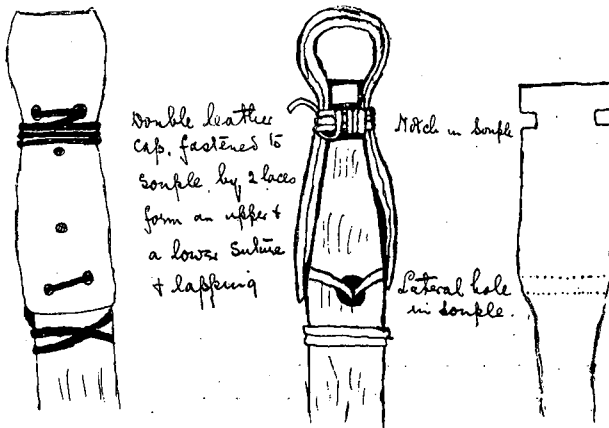 Double leather
cap, fastened to
souple, by 2 laces
form an upper &
a lower suture
& lapping
Notch in souple
Lateral hole
in souple.